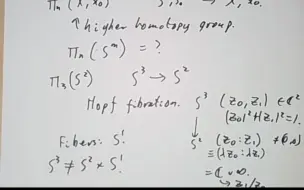 Πₙ(X, x₀)
↑ higher homotopy group.
Πₙ(Sᵐ) = ?
Π₃(S²) S³ → S²
Hopf fibration. S³ (z₀, z₁) ∈ ℂ²
|z₀|²+|z₁|²=1.
↓
Fibers: S¹. S² (z₀ : z₁) ≠ (0,0)
≡ (λz₀ : λz₁)
S³ ≠ S² × S¹. = ℂ ∪ ∞.
→ z₁/z₀